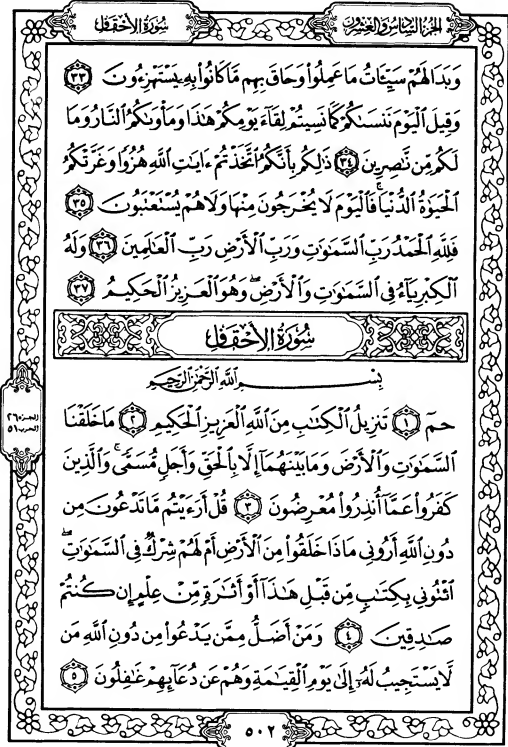 الجزء السادس والعشرون
سورة الأحقاف
وَبَدَا لَهُمْ سَيِّـَٔاتُ مَا عَمِلُوا۟ وَحَاقَ بِهِم مَّا كَانُوا۟ بِهِۦ يَسْتَهْزِءُونَ ٣٣
وَقِيلَ ٱلْيَوْمَ نَنسَىٰكُمْ كَمَا نَسِيتُمْ لِقَآءَ يَوْمِكُمْ هَٰذَا وَمَأْوَىٰكُمُ ٱلنَّارُ وَمَا
لَكُم مِّن نَّٰصِرِينَ ٣٤ ذَٰلِكُم بِأَنَّكُمُ ٱتَّخَذْتُمْ ءَايَٰتِ ٱللَّهِ هُزُوًا وَغَرَّتْكُمُ
ٱلْحَيَوٰةُ ٱلدُّنْيَا ۚ فَٱلْيَوْمَ لَا يُخْرَجُونَ مِنْهَا وَلَا هُمْ يُسْتَعْتَبُونَ ٣٥
فَلِلَّهِ ٱلْحَمْدُ رَبِّ ٱلسَّمَٰوَٰتِ وَرَبِّ ٱلْأَرْضِ رَبِّ ٱلْعَٰلَمِينَ ٣٦ وَلَهُ
ٱلْكِبْرِيَآءُ فِى ٱلسَّمَٰوَٰتِ وَٱلْأَرْضِ ۖ وَهُوَ ٱلْعَزِيزُ ٱلْحَكِيمُ ٣٧
سُورَةُ الأَحْقَافِ
بِسْمِ ٱللَّهِ ٱلرَّحْمَٰنِ ٱلرَّحِيمِ
حمٓ ١ تَنزِيلُ ٱلْكِتَٰبِ مِنَ ٱللَّهِ ٱلْعَزِيزِ ٱلْحَكِيمِ ٢ مَا خَلَقْنَا
ٱلسَّمَٰوَٰتِ وَٱلْأَرْضَ وَمَا بَيْنَهُمَآ إِلَّا بِٱلْحَقِّ وَأَجَلٍ مُّسَمًّى ۚ وَٱلَّذِينَ
كَفَرُوا۟ عَمَّآ أُنذِرُوا۟ مُعْرِضُونَ ٣ قُلْ أَرَءَيْتُم مَّا تَدْعُونَ مِن
دُونِ ٱللَّهِ أَرُونِى مَاذَا خَلَقُوا۟ مِنَ ٱلْأَرْضِ أَمْ لَهُمْ شِرْكٌ فِى ٱلسَّمَٰوَٰتِ ۖ
ٱئْتُونِى بِكِتَٰبٍ مِّن قَبْلِ هَٰذَآ أَوْ أَثَٰرَةٍ مِّنْ عِلْمٍ إِن كُنتُمْ
صَٰدِقِينَ ٤ وَمَنْ أَضَلُّ مِمَّن يَدْعُوا۟ مِن دُونِ ٱللَّهِ مَن
لَّا يَسْتَجِيبُ لَهُۥٓ إِلَىٰ يَوْمِ ٱلْقِيَٰمَةِ وَهُمْ عَن دُعَآئِهِمْ غَٰفِلُونَ ٥
الجزء ٢٦
الحزب ٥١
٥٠٢